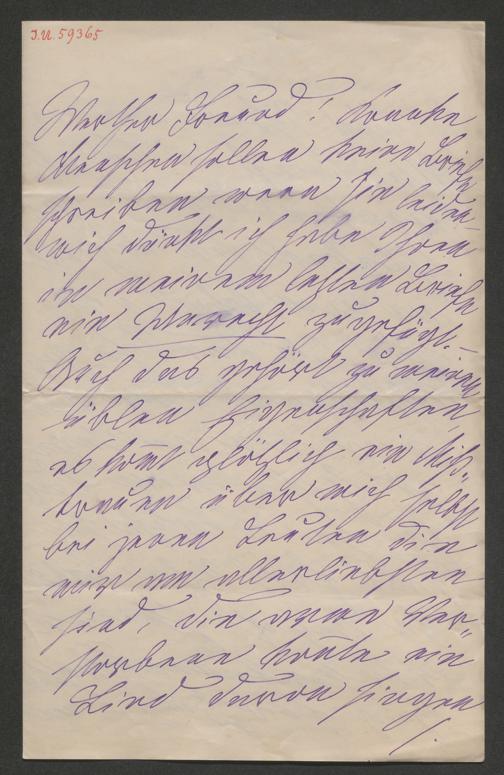 J.N. 59365
Werther Freund! Kranke
Menschen sollen keine Briefe
schreiben wenn sie leiden
mich dünkt ich habe Ihnen
in meinem letzten Briefe
ein Unrecht zugefügt. –
Auch das gehört zu meinen
üblen Eigenschaften,
es kom̄t plötzlich ein Miß„
trauen über mich selbst
bei jenen Leuten die
mir am allerliebsten
sind, die arme Ver„
storbene kon̄te ein
Lied davon singen
/.